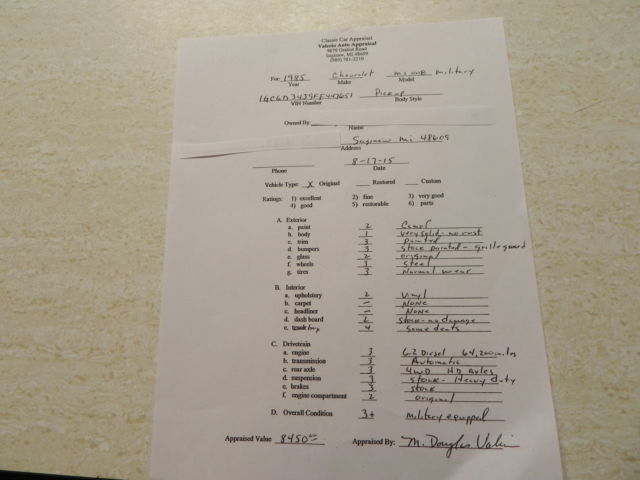 Classic Car Appraisal
Valerio Auto Appraisal
Saginaw, MI 48609
(989) 781-2210
For 1985 Chevrolet M1008 Military
Year Make Model
Pickup
VIN Number Body Style
Owned By:
Name
Saginaw Mi 48609
Address
8-17-15
Phone Date
Vehicle Type: X Original Restored Custom
Ratings: 1) excellent 2) fine 3) very good
4) good 5) restorable 6) parts
A. Exterior
a. paint 2 Camel
b. body 1 very solid - no rust
c. trim 3 painted
d. bumpers 3 stock painted - grille guard
e. glass 2 original
f. wheels 3 steel
g. tires 3 normal wear
B. Interior
a. upholstery 2 vinyl
b. carpet – NONE
c. headliner – NONE
d. dash board 2 stock - no damage
e. 4 some dents
C. Drivetrain
a. engine 3 6.2 Diesel 64,200 miles
b. transmission 3 Automatic
c. rear axle 3 4WD HD Axles
d. suspension 3 stock - Heavy duty
e. brakes 3 stock
f. engine compartment 2 original
D. Overall Condition 3+ military equipped
Appraised Value $8450 Appraised By: M. Douglas